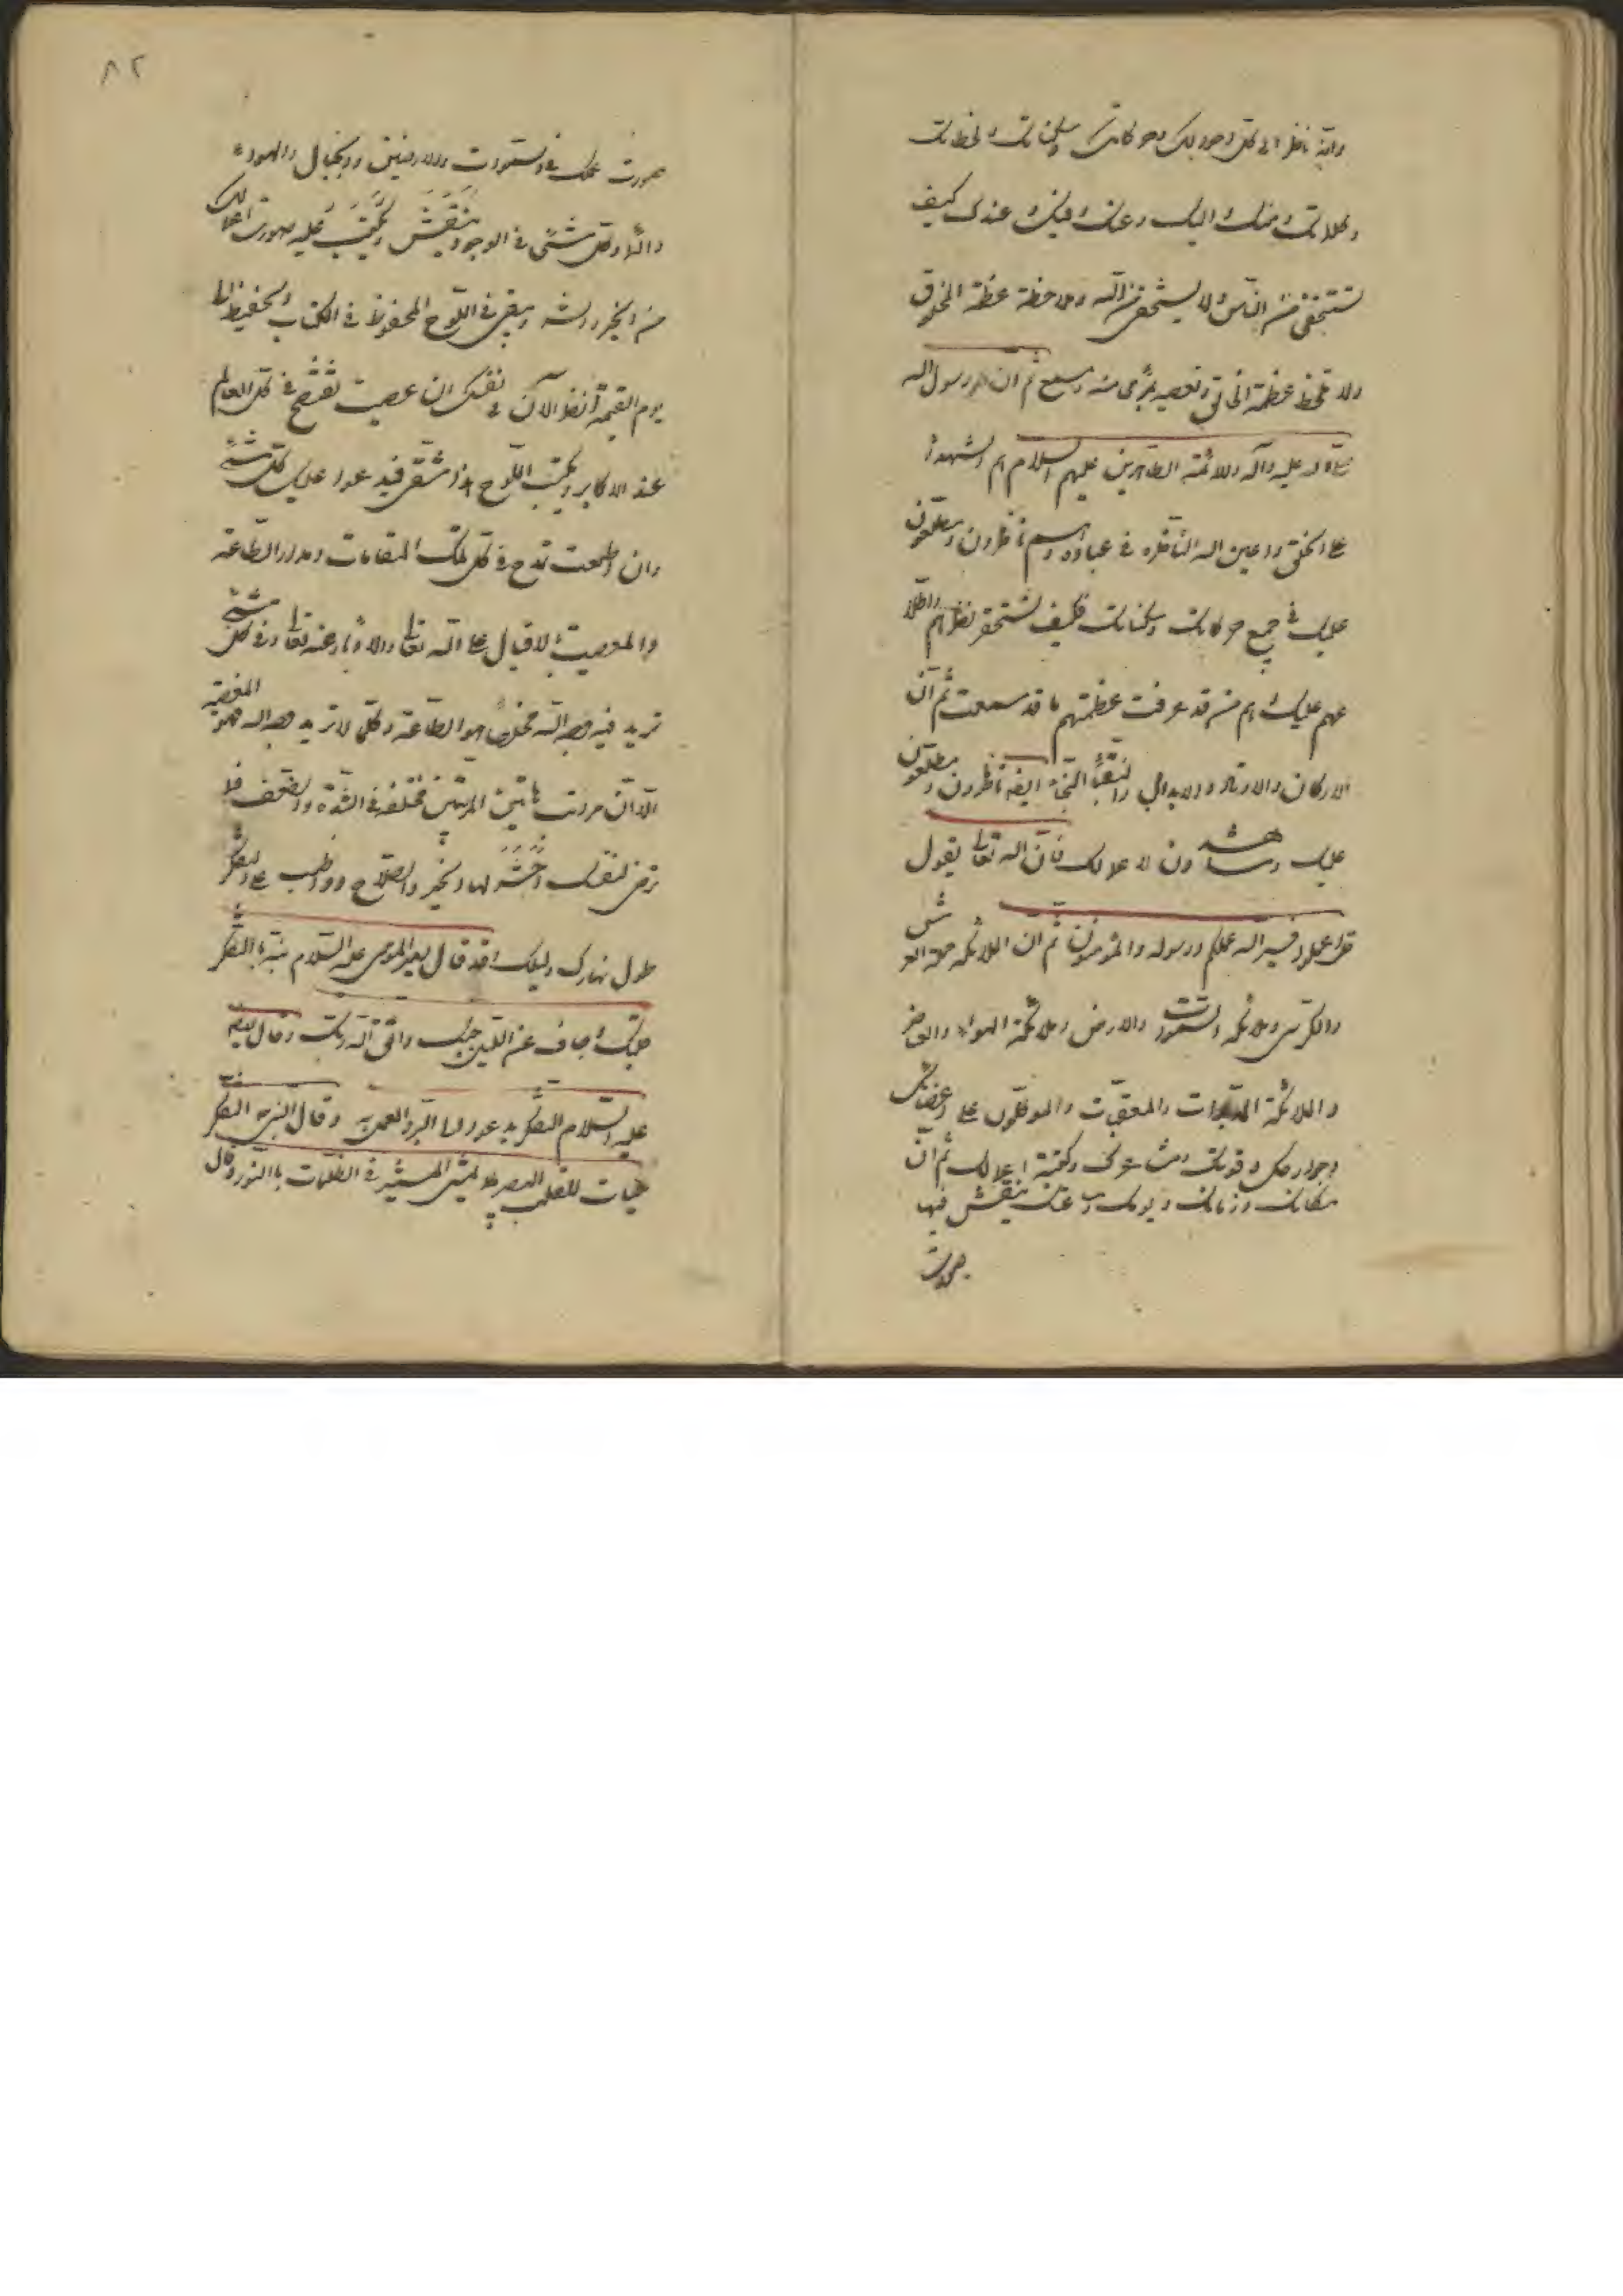 وانه ناظر الى كل وجودك وحركاتك وسكناتك ولحظاتك
وكلماتك ومنك واليك وعنك وفيك وعندك كيف
تستخفى من الناس ولا يستخفى من الله وملاحظة عظمة المخلوق
ولا تلاحظ عظمة الخالق وتعصيه بمرئ منه ومسمع ثم ان رسول الله
صلى الله عليه وآله والائمة الطاهرين عليهم السلام هم الشهداء
على الخلق واعين الله الناظرة في عباده وهم ناظرون ومطلعون
عليك في جميع حركاتك وسكناتك فكيف تستحقر نظرهم واطلا
عهم عليك وهم من قد عرفت عظمتهم ما قد سمعت ثم ان
الاركان والاوتاد والابدال والنقباء النجباء ايضا ناظرون ومطلعون
عليك وشاهدون لاعمالك فان الله تعالى يقول
قل اعملوا فسيرى الله عملكم ورسوله والمؤمنون ثم ان الملائكة حملة العرش
والكرسي وملائكة السموات والارض وملائكة الهواء والعناصر
والملائكة المدبرات والمعقبات والموكلون على اعضائك
وجوارحك وقوتك ومشاعرك وكتبة اعمالك ثم ان
مكانك وزمانك ويومك وساعتك ينتقش فيها
صورت
٨٢
صورت عملك في السموات والارضين والجبال والهواء
دائما وكل شئ في الوجود ينتقش ويكتب عليه صورت اعمالك
من الخير والشر ويبقى في اللوح المحفوظ في الكتاب الحفيظ الى
يوم القيمة انظر الآن في نفسك ان عصيت تفتضح في كل العالم
عند الاكابر ويكتب اللوح هذا شقي فيدعوا عليك كل شئ
وان اطعت تمدح في كل تلك المقامات ومدار الطاعة
والمعصية الاقبال على الله تعالى والادبار عنه تعالى وفي كل شئ
تريد فيه وجه الله مخلصا هو الطاعة وكل لا تريد وجه الله فهو المعصية
الا ان مراتب هاتين المرتبتين مختلفة في الشدة والضعف فلا
ترض لنفسك اختر لها الخير والصلاح وواظب على التفكر
طول نهارك وليلك فقد قال امير المؤمنين عليه السلام نبه بالتفكر
قلبك وجاف عن الليل جنبك واتق الله ربك وقال ايضا
عليه السلام التفكر يدعو الى البر والعمل به وقال النبي التفكر
حيات للقلب البصير كما يمشي المستنير في الظلمات بالنور وقال